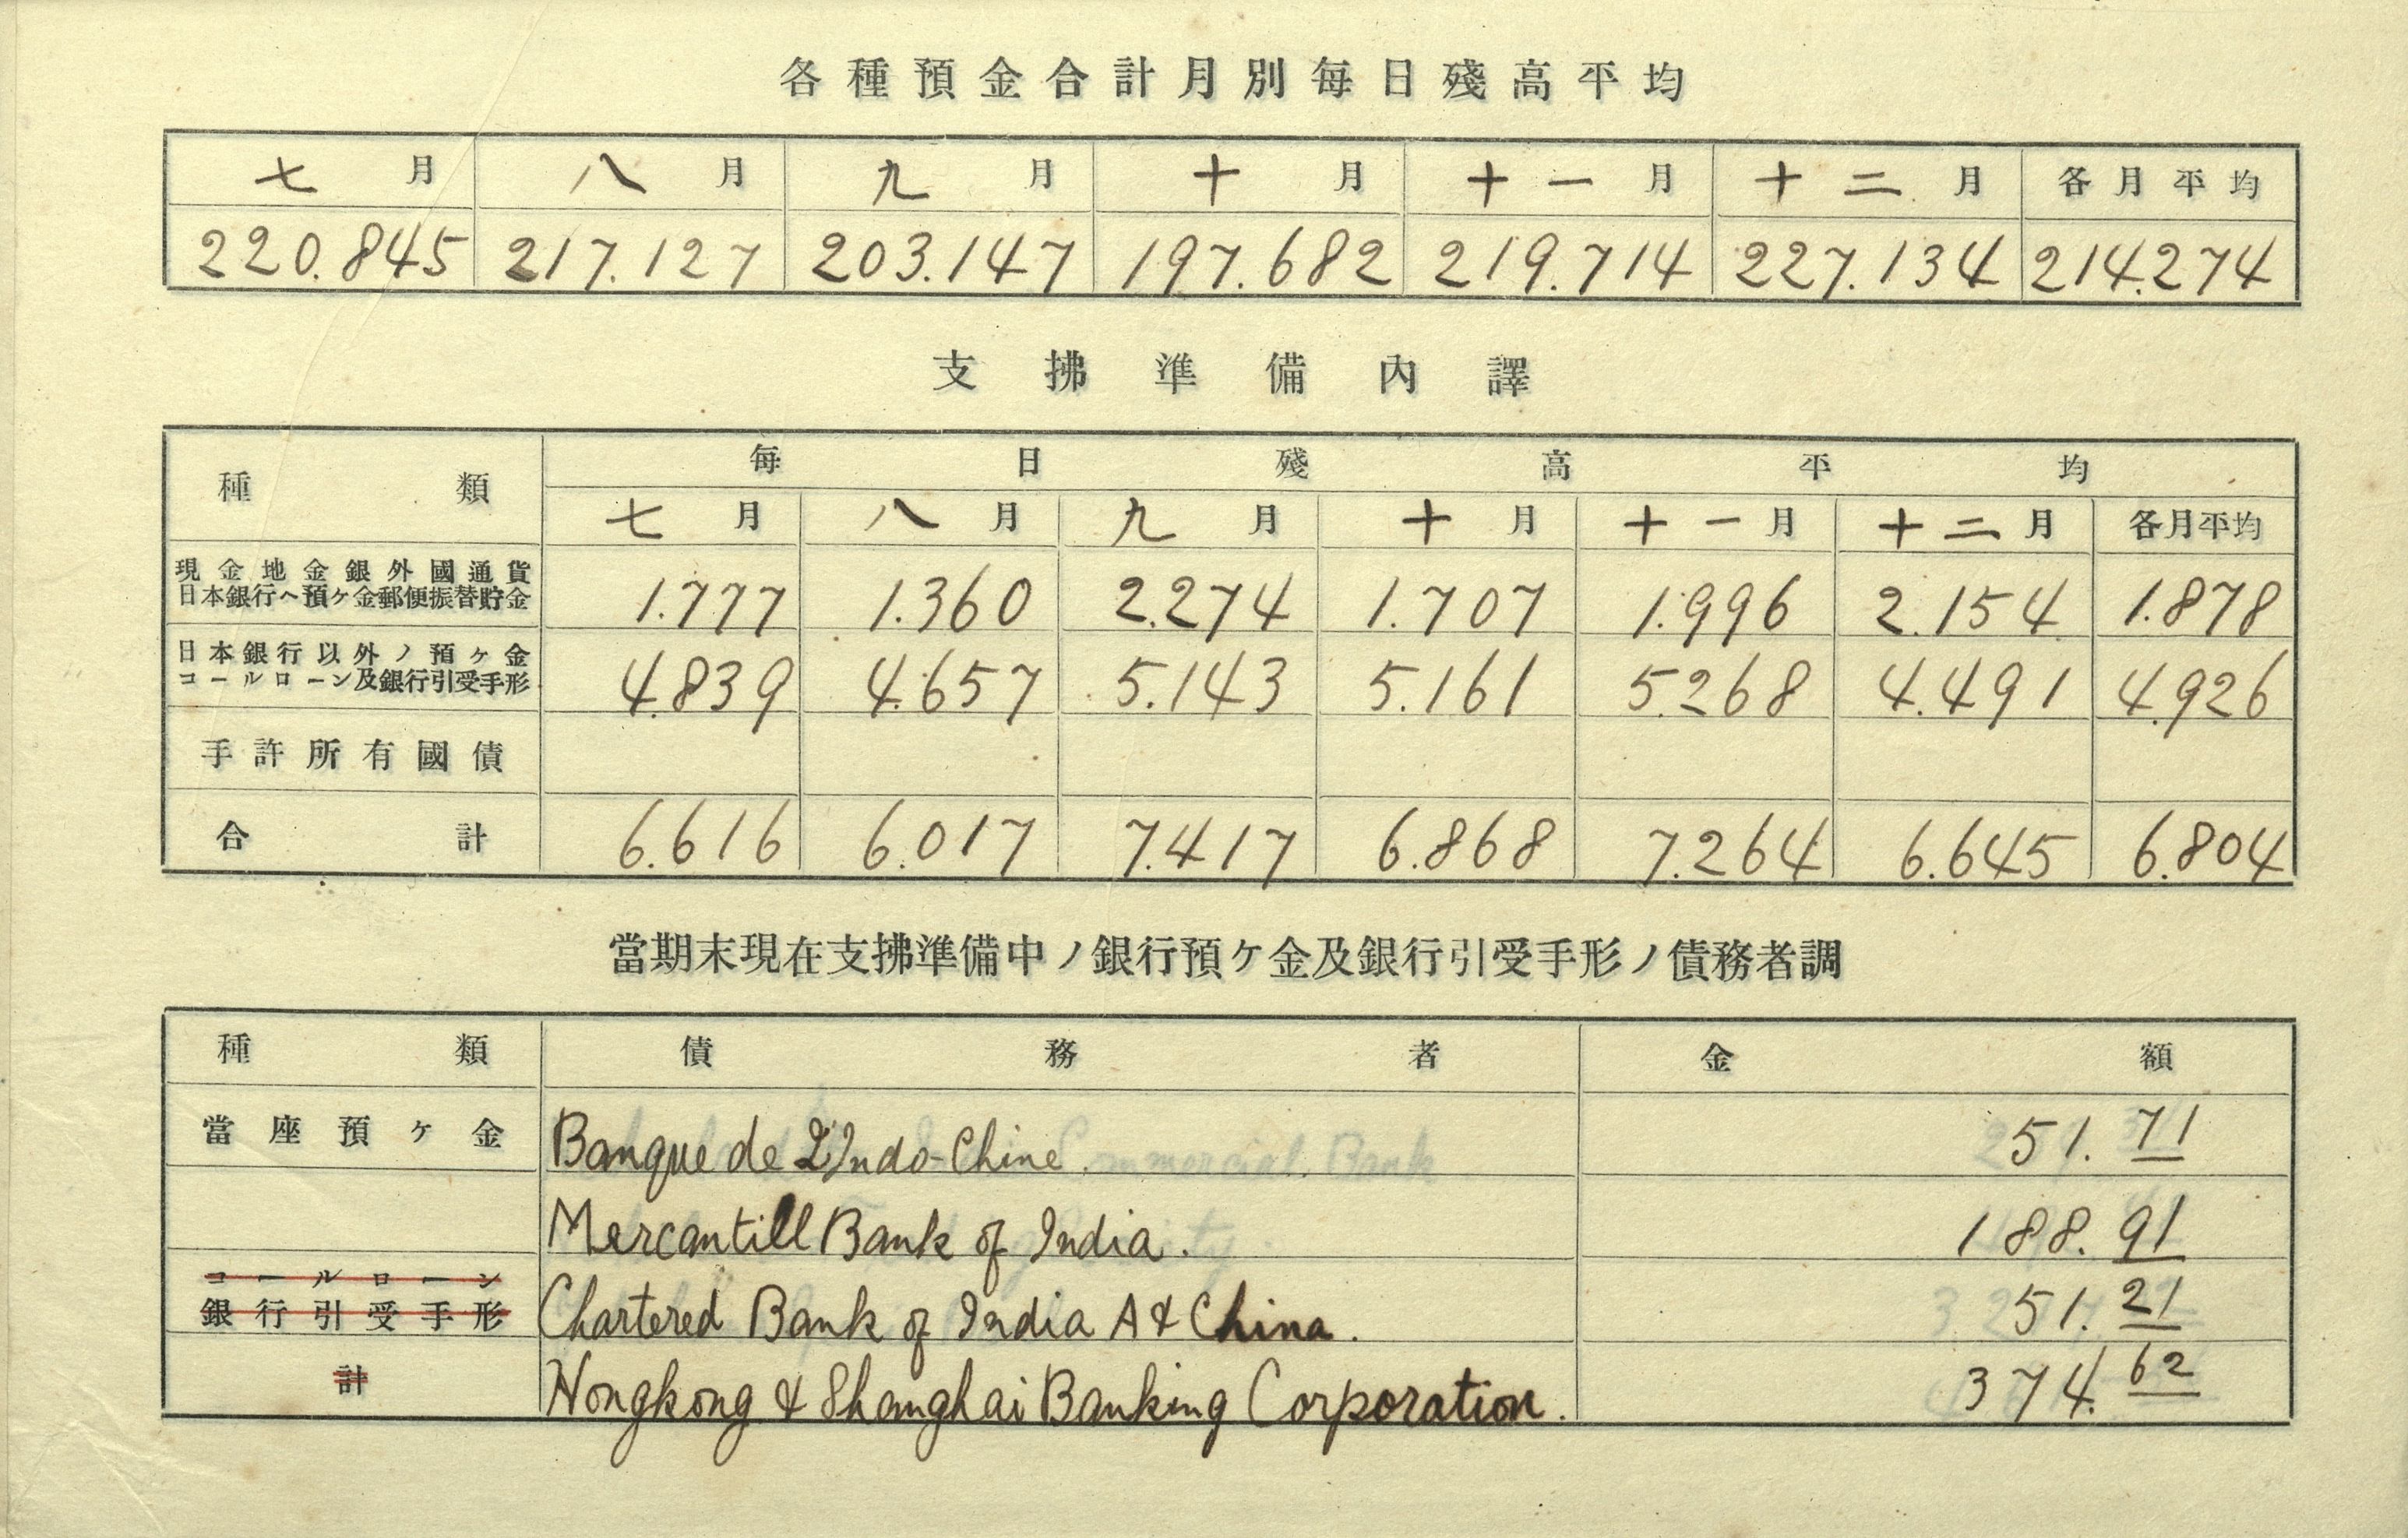 各種預金合計月別每日殘高平均
七月 八月 九月 十月 十一月 十二月 各月平均
220.845 217.127 203.147 197.682 219.714 227.134 214.274
支拂準備內譯
種類 每日殘高平均
七月 八月 九月 十月 十一月 十二月 各月平均
現金地金銀外國通貨
日本銀行ヘ預ケ金郵便振替貯金 1.777 1.360 2.274 1.707 1.996 2.154 1.878
日本銀行以外ノ預ケ金
コールローン及銀行引受手形 4.839 4.657 5.143 5.161 5.268 4.491 4.926
手許所有國債
合計 6.616 6.017 7.417 6.868 7.264 6.645 6.804
當期末現在支拂準備中ノ銀行預ケ金及銀行引受手形ノ債務者調
種類 債務者 金額
當座預ケ金 Banque de L'Indo-Chine. 51.71
Mercantill Bank of India. 188.91
コールローン
銀行引受手形 Chartered Bank of India A & China. 51.21
計 Hongkong & Shanghai Banking Corporation. 374.62